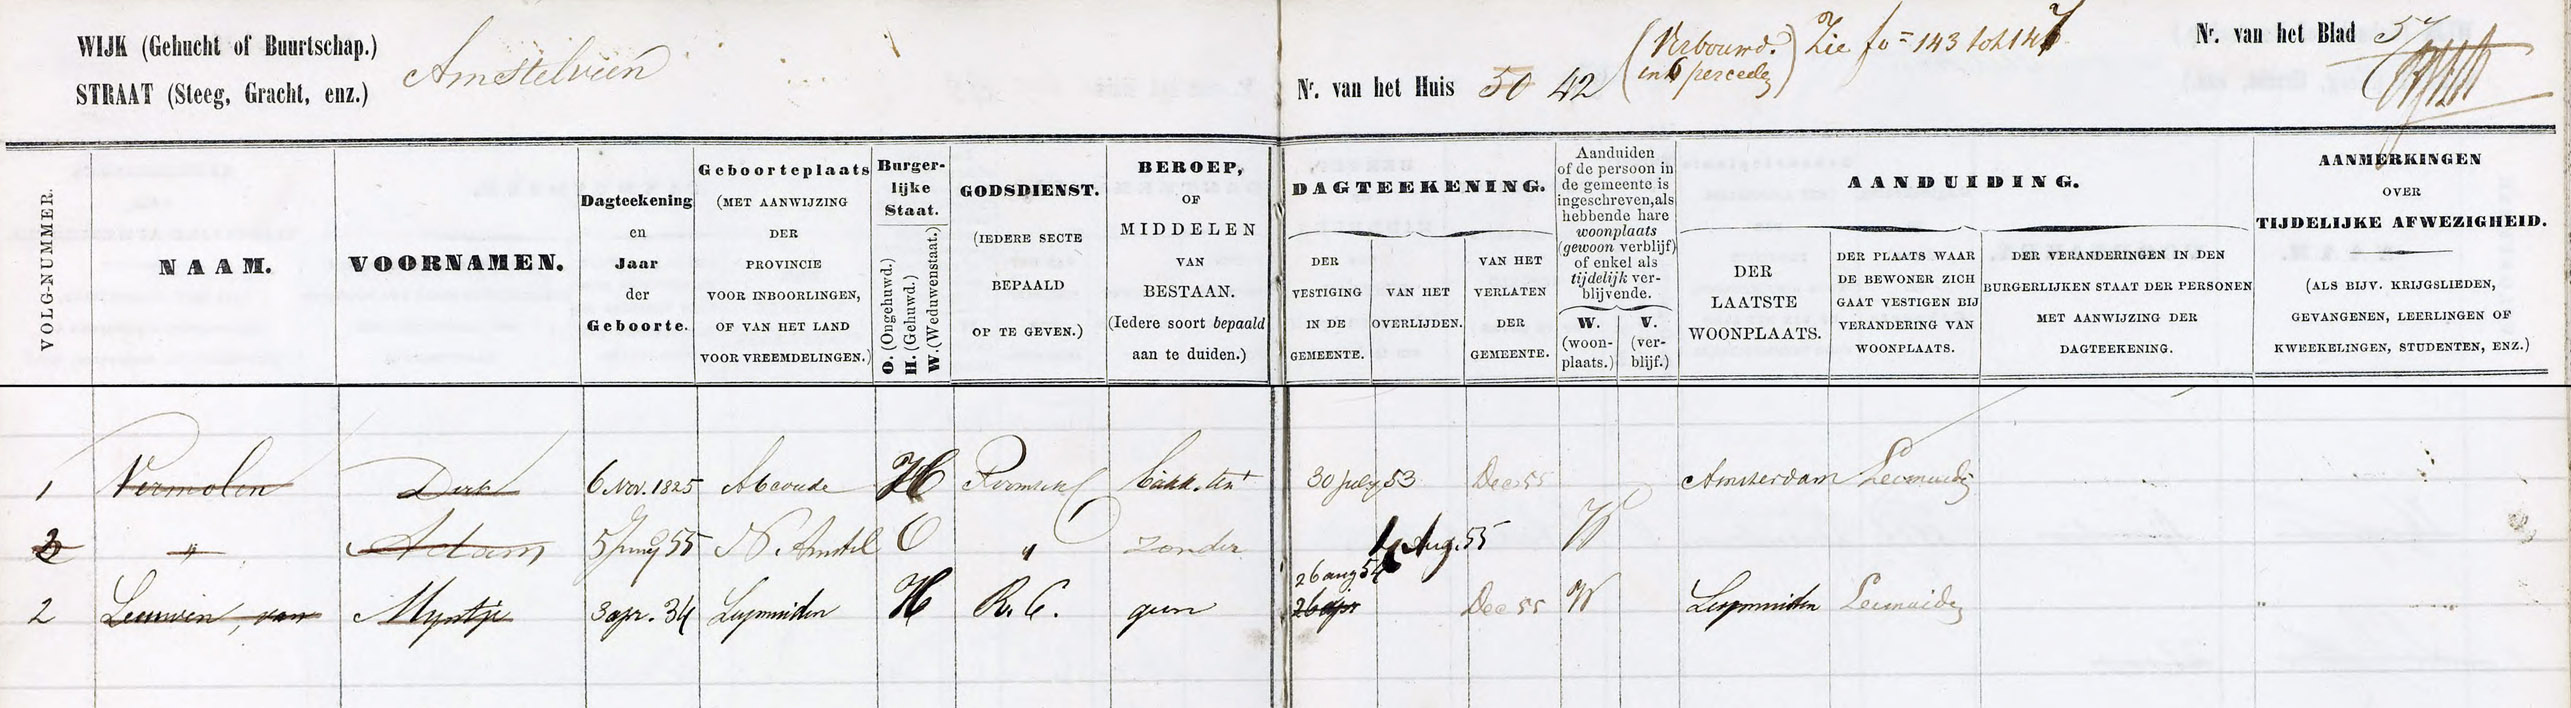 WIJK (Gehucht of Buurtschap.)
STRAAT (Steeg, Gracht, enz.)
Amstelveen
Nr. van het Huis 50 42
(Verbouwd. in 6 perceelen) Zie fo = 143 tot 147
Nr. van het Blad 57
VOLG-NUMMER.
NAAM.
VOORNAMEN.
Dagteekening
en
Jaar
der
Geboorte.
Geboorteplaats
(MET AANWIJZING
DER
PROVINCIE
VOOR INBOORLINGEN,
OF VAN HET LAND
VOOR VREEMDELINGEN.)
Burger-
lijke
Staat.
O. (Ongehuwd.)
H. (Gehuwd.)
W. (Weduwenstaat.)
GODSDIENST.
(IEDERE SECTE
BEPAALD
OP TE GEVEN.)
BEROEP,
OF
MIDDELEN
VAN
BESTAAN.
(Iedere soort bepaald
aan te duiden.)
DAGTEEKENING.
DER
VESTIGING
IN DE
GEMEENTE.
VAN HET
OVERLIJDEN.
VAN HET
VERLATEN
DER
GEMEENTE.
Aanduiden
of de persoon in
de gemeente is
ingeschreven, als
hebbende hare
woonplaats
(gewoon verblijf)
of enkel als
tijdelijk ver-
blijvende.
W.
(woon-
plaats.)
V.
(ver-
blijf.)
AANDUIDING.
DER
LAATSTE
WOONPLAATS.
DER PLAATS WAAR
DE BEWONER ZICH
GAAT VESTIGEN BIJ
VERANDERING VAN
WOONPLAATS.
DER VERANDERINGEN IN DEN
BURGERLIJKEN STAAT DER PERSONEN
MET AANWIJZING DER
DAGTEEKENING.
AANMERKINGEN
OVER
TIJDELIJKE AFWEZIGHEID.
(ALS BIJV. KRIJGSLIEDEN,
GEVANGENEN, LEERLINGEN OF
KWEEKELINGEN, STUDENTEN, ENZ.)
1 Vermolen Dirk 6 Nov. 1825 Abcoude H Roomsch 30 july 53 Dec 55 Amsterdam Leimuiden
3 " Adam 5 Juny 55 N. Amstel O " zonder Aug. 55 W
2 Leeuwen, van Myntje 3 apr. 34 Leymuiden H R. C. geen 26 aug 54 26 apr Dec 55 W Leymuiden Leimuiden